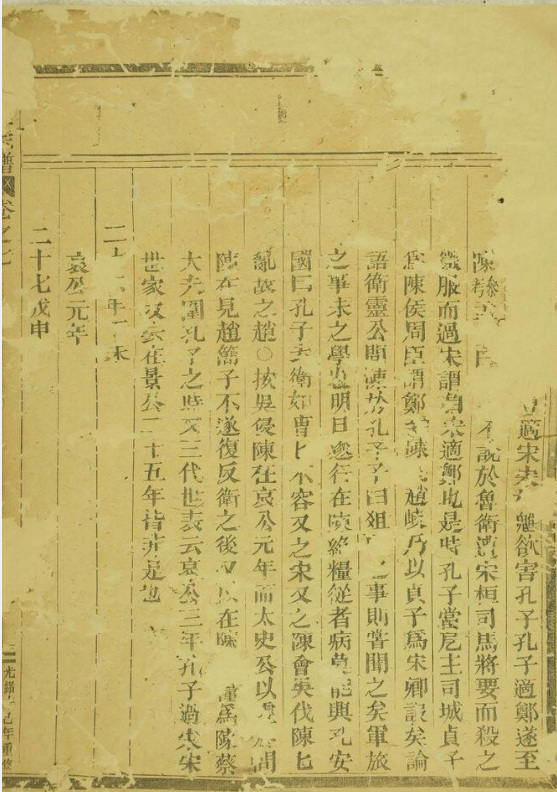 適宋 魋欲害孔子孔子適鄭遂至
陳 不說於魯衛遭宋桓司馬將要而殺之
微服而過宋謂自宋適鄭也是時孔子當阨主司城貞子
為陳侯周臣謂鄭 趙岐乃以貞子為宋卿誤矣論
語衛靈公問陳於孔子子曰俎 事則嘗聞之矣軍旅
之事未之學也明日遂行在陳絕糧從者病莫能與孔安
國曰孔子去衛如曹 不容又之宋又之陳會吳伐陳
亂故之趙○按吳侵陳在哀公元年而太史公以
陳在見趙簡子不遂復反衛之後又以在陳 為陳蔡
大夫圍孔子之時又三代世表云哀公三年孔子過宋宋
世家又云在景公二十五年皆非是也
二十 年 未
哀公元年
二十七戊申
宗譜 卷之七
光緒 年重修